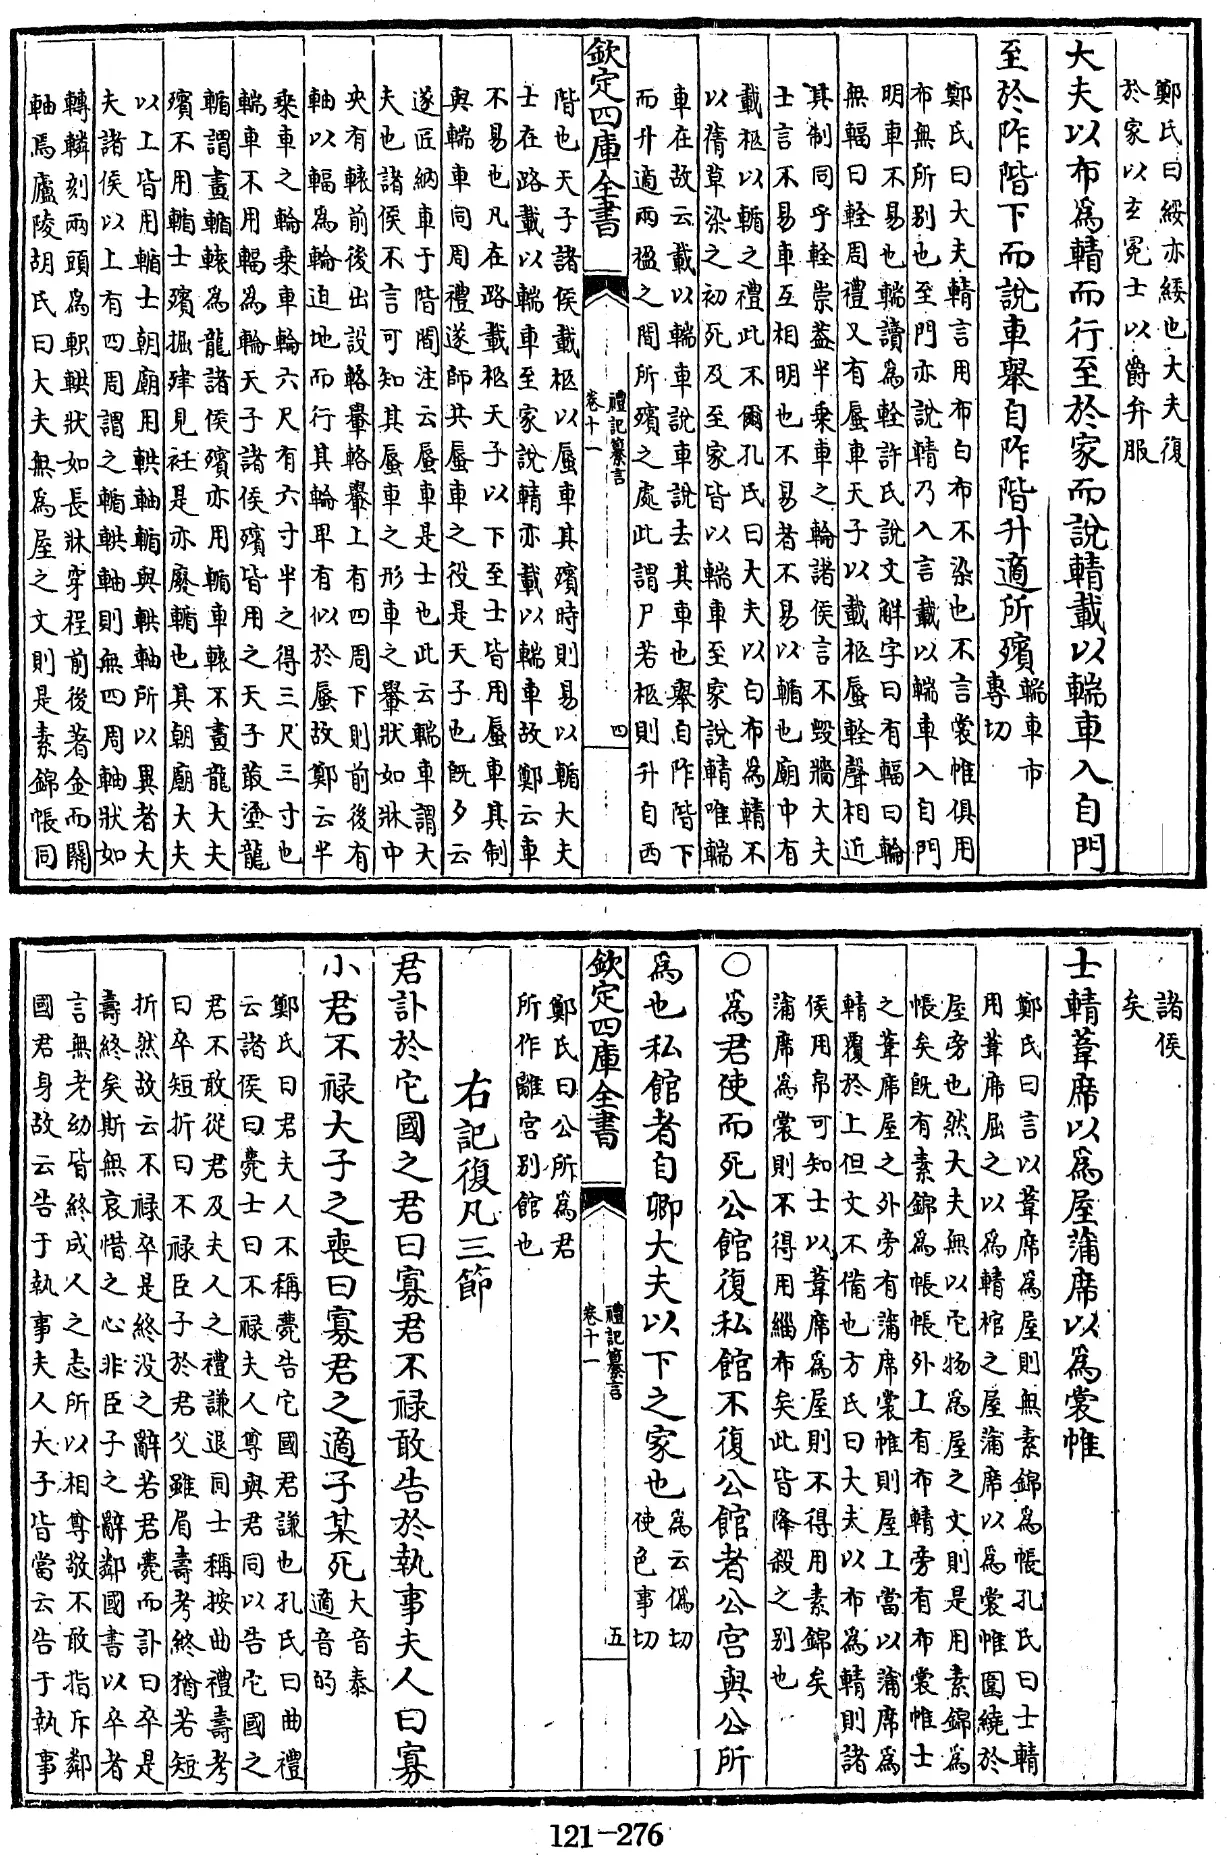 鄭氏曰綏亦緌也大夫復
於家以玄冕士以爵弁服
大夫以布為輤而行至於家而說輤載以輲車入自門
至於阼階下而說車舉自阼階升適所殯輲車市
專切
鄭氏曰大夫輤言用布白布不染也不言裳帷俱用
布無所别也至門亦說輤乃入言載以輲車入自門
明車不易也輲讀為輇許氏說文解字曰有輻曰輪
無輻曰輇周禮又有蜃車天子以載柩蜃輇聲相近
其制同乎輇崇葢半乗車之輪諸侯言不毁牆大夫
士言不易車互相明也不易者不易以輴也廟中有
載柩以輴之禮此不爾孔氏曰大夫以白布為輤不
以蒨草染之初死及至家皆以輲車至家說輤唯輲
車在故云載以輲車說車說去其車也舉自阼階下
而升適兩楹之間所殯之處此謂尸若柩則升自西
欽定四庫全書
禮記纂言
卷十一
四
階也天子諸侯載柩以蜃車其殯時則易以輴大夫
士在路載以輲車至家說輤亦載以輲車故鄭云車
不易也凡在路載柩天子以下至士皆用蜃車其制
與輲車同周禮遂師共蜃車之役是天子也既夕云
遂匠納車于階間注云蜃車是士也此云輲車謂大
夫也諸侯不言可知其蜃車之形車之轝狀如牀中
央有轅前後出設輅轝輅轝上有四周下則前後有
軸以輻為輪迫地而行其輪卑有似於蜃故鄭云半
乗車之輪乗車輪六尺有六寸半之得三尺三寸也
輲車不用輻為輪天子諸侯殯皆用之天子菆塗龍
輴謂畫輴轅為龍諸侯殯亦用輴車轅不畫龍大夫
殯不用輴士殯掘肂見衽是亦廢輴也其朝廟大夫
以上皆用輴士朝廟用輁軸輴與輁軸所以異者大
夫諸侯以上有四周謂之輴輁軸則無四周軸狀如
轉轔刻兩頭為軹輁狀如長牀穿桯前後著金而關
軸焉廬陵胡氏曰大夫無為屋之文則是素錦帳同
諸侯
矣
士輤葦席以為屋蒲席以為裳帷
鄭氏曰言以葦席為屋則無素錦為帳孔氏曰士輤
用葦席屈之以為輤棺之屋蒲席以為裳帷圍繞於
屋旁也然大夫無以它物為屋之文則是用素錦為
帳矣既有素錦為帳帳外上有布輤旁有布裳帷士
之葦席屋之外旁有蒲席裳帷則屋上當以蒲席為
輤覆於上但文不備也方氏曰大夫以布為輤則諸
侯用帛可知士以葦席為屋則不得用素錦矣
蒲席為裳則不得用緇布矣此皆降殺之别也
○為君使而死公館復私館不復公館者公宫與公所
為也私館者自卿大夫以下之家也為云偽切
使色事切
欽定四庫全書
禮記纂言
卷十一
五
鄭氏曰公所為君
所作離宫别館也
右記復凡三節
君訃於它國之君曰寡君不禄敢告於執事夫人曰寡
小君不禄大子之喪曰寡君之適子某死大音泰
適音的
鄭氏曰君夫人不稱薨告它國君謙也孔氏曰曲禮
云諸侯曰薨士曰不禄夫人尊與君同以告它國之
君不敢從君及夫人之禮謙退同士稱按曲禮壽考
曰卒短折曰不禄臣子於君父雖眉壽考終猶若短
折然故云不禄卒是終没之辭若君薨而訃曰卒是
壽終矣斯無哀惜之心非臣子之辭鄰國書以卒者
言無老幼皆終成人之志所以相尊敬不敢指斥鄰
國君身故云告于執事夫人大子皆當云告于執事
121-276